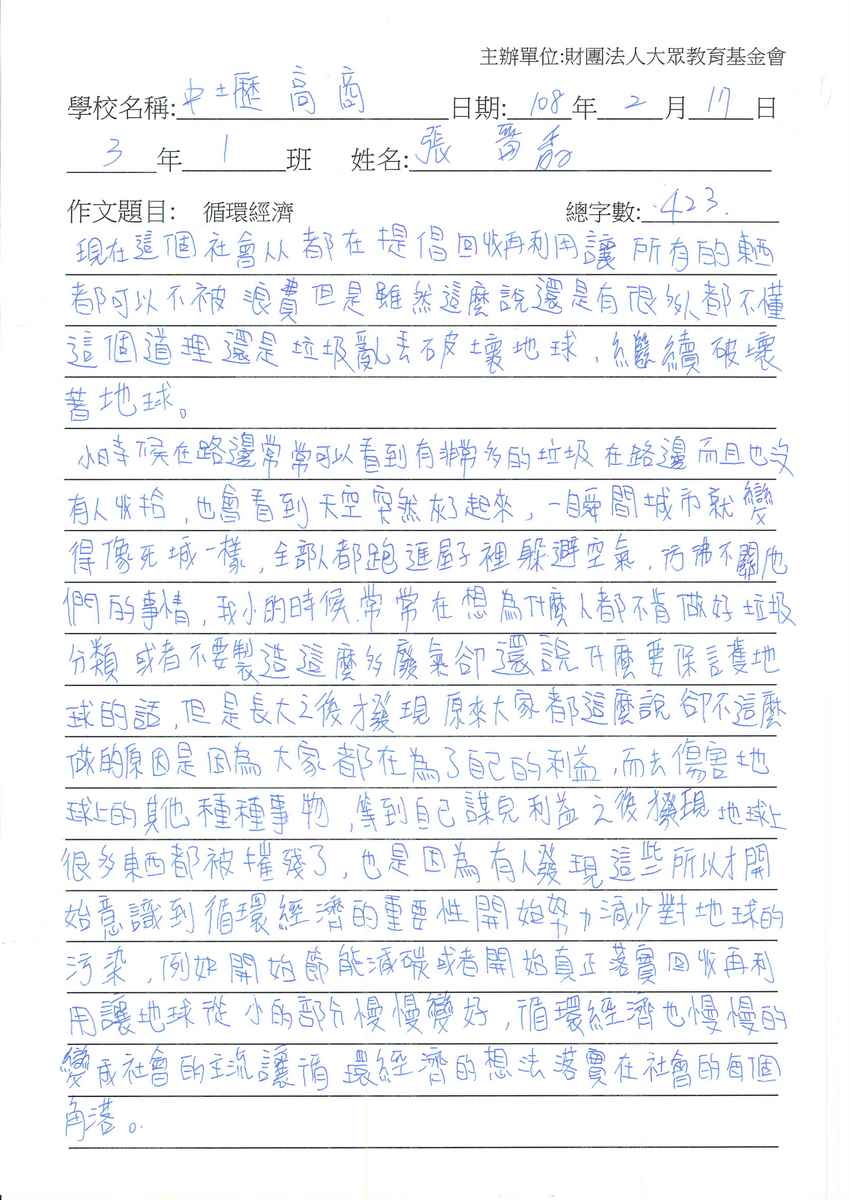 主辦單位:財團法人大眾教育基金會
學校名稱: 中土壢高商 日期: 108 年 2 月 17 日
3 年 1 班 姓名: 張
作文題目: 循環經濟 總字數: 423.
現在這個社會从都在提倡回收再利用讓所有的東西
都可以不被浪費但是雖然這麼說還是有很多人都不懂
這個道理還是垃圾亂丟破壞地球,繼續破壞
著地球。
小時候在路邊常常可以看到有非常多的垃圾在路邊而且也沒
有人收拾,也會看到天空突然灰了起來,一瞬間城市就變
得像死城一樣,全部人都跑進屋子裡躲避空氣,彷彿不關他
們的事情,我小的時候常常在想為什麼人都不肯做好垃圾
分類或者不要製造這麼多廢氣卻還說什麼要保護地
球的話,但是長大之後才發現原來大家都這麼說卻不這麼
做的原因是因為大家都在為了自己的利益,而去傷害地
球上的其他種種事物,等到自己謀見利益之後才發現地球上
很多東西都被摧殘了,也是因為有人發現這些所以才開
始意識到循環經濟的重要性開始努力減少對地球的
污染,例如開始節能減碳或者開始真正落實回收再利
用讓地球從小的部分慢慢變好,循環經濟也慢慢的
變成社會的主流讓循環經濟的想法落實在社會的每個
角落。